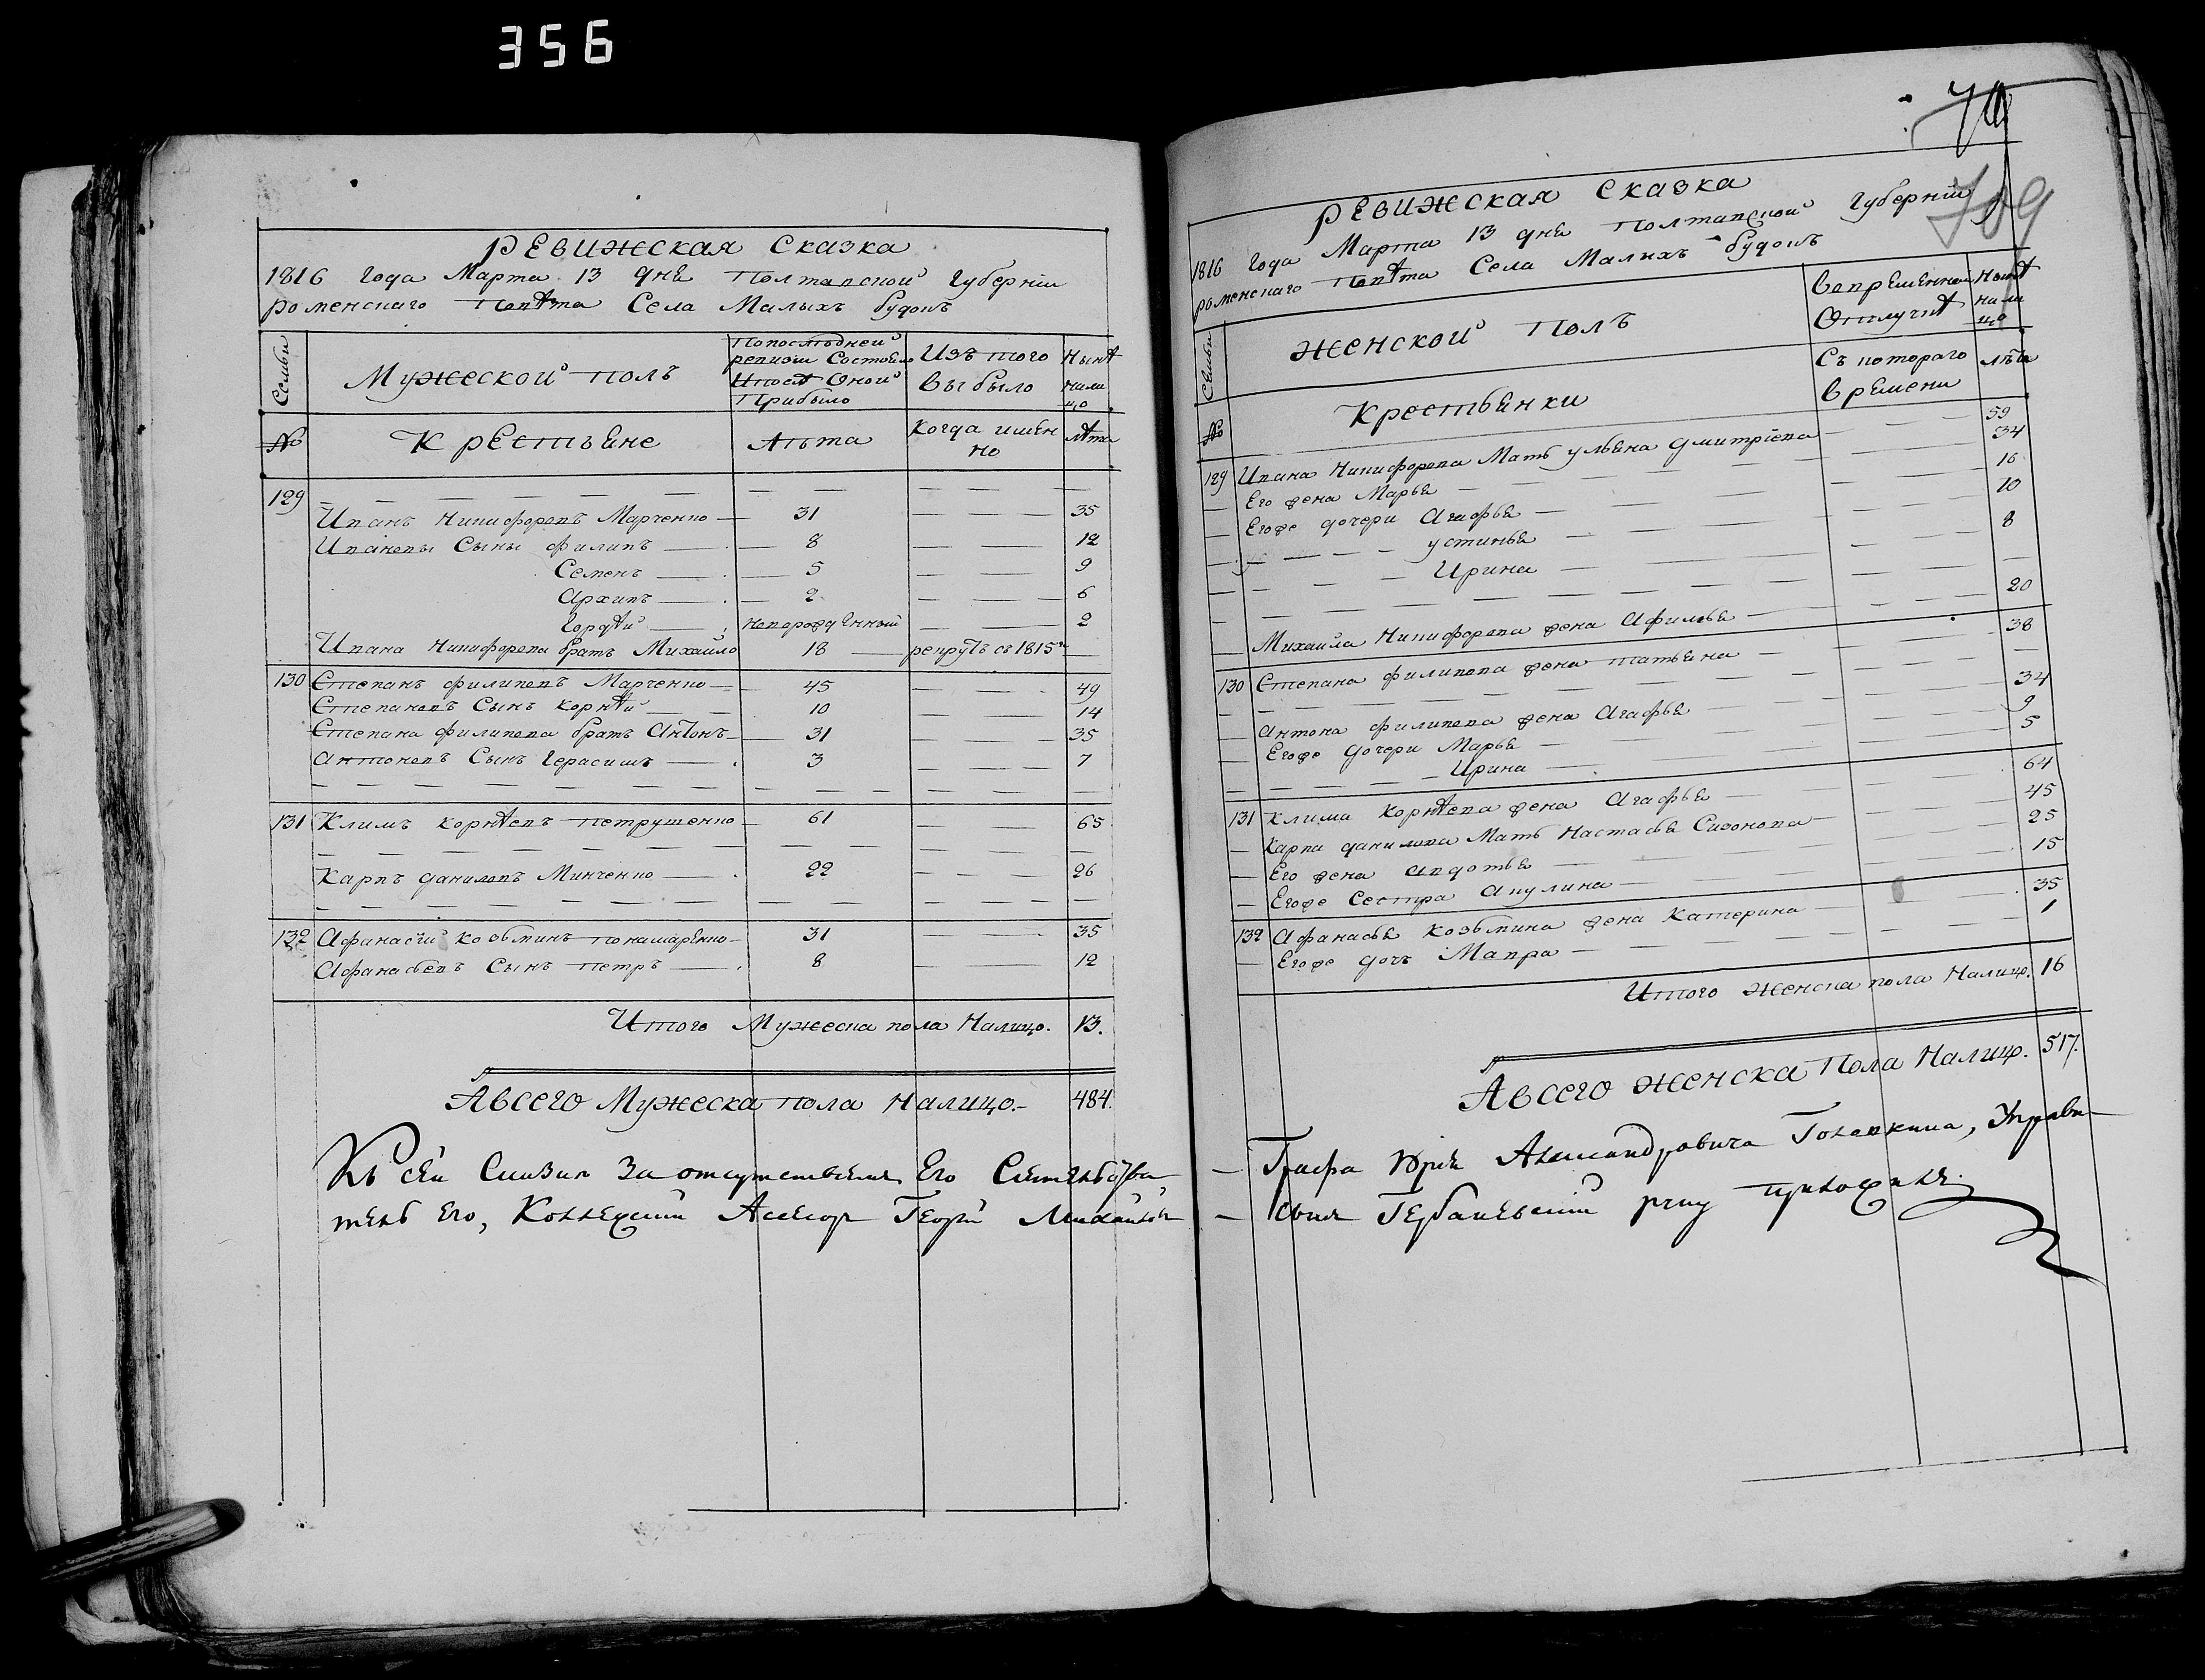 356
РЕВИЖСКАЯ СКАЗКА
1816 Года Марта 13 дня Полтавской Губерніи
роменскаго Повѣта Села Малыхъ будокъ
Семьи
Мужеской полъ
Попослѣдней ревизіи Состояло Ипослѣ Оной Прибыло
Изъ того выбыло
Нынѣ нали цо
№
Крестьяне
Лѣта
Когда имен но
лѣта
129
Иванъ Никифоровъ Марченко 31 35
Ивановы Сыны филипъ 8 12
Семенъ 5 9
Архипъ 2 6
Гордѣй неворожденный 2
Ивана Никифорова братъ Михайло 18 рекрутъ съ 1815го
130 Степанъ филиповъ Марченко 45 49
Степановъ Сынъ Корнѣй 10 14
Степана филипова братъ Антонъ 31 35
Антоновъ Сынъ Герасимъ 3 7
131 Климъ Корнѣевъ петрушенко 61 65
Карпъ даниловъ Минченко 22 26
132 Афанасій козьминъ понамаренко 31 35
Афанасьевъ Сынъ петръ 8 12
Итого Мужеска пола Налицо. 13.
Авсего Мужеска пола Налицо. 484.
Къ сей Сказки За отсутствіемъ Его Сіятельства
тель Его, Коллежскій Асесор Георгій Михайлов
70
709
РЕВИЖСКАЯ СКАЗКА
1816 года Марта 13 дня Полтавской Губерніи
роменскаго Повѣта Села Малыхъ будокъ
Семьи
Женской Полъ
Вовременной Отлучкѣ
Нынѣ нали цо
№
Крестьянки
Съ котораго времени
лѣта
129 Ивана Никифорова Мать ульяна дмитріева 59
Его жена Марья 34
Егоже дочери Агафья 16
устинья 10
Ирина 8
Михайла Никифорова жена Афимья 20
130 Степана филипова жена татьяна 38
Антона филипова жена Агафья 34
Егоже дочери Марья 9
Ирина 5
131 Клима Корнѣева жена Агафья 64
Карпа данилова Мать Настасья Сизонова 45
Его жена авдотья 25
Егоже Сестра Акулина 15
132 Афанасья козьмина жена Катерина 35
Егоже дочь Мавра 1
Итого женска пола Налицо. 16
Авсего женска Пола Налицо. 517.
Графа Юрія Александровича Головкина, Управи
Гербаневскій руку приложилъ